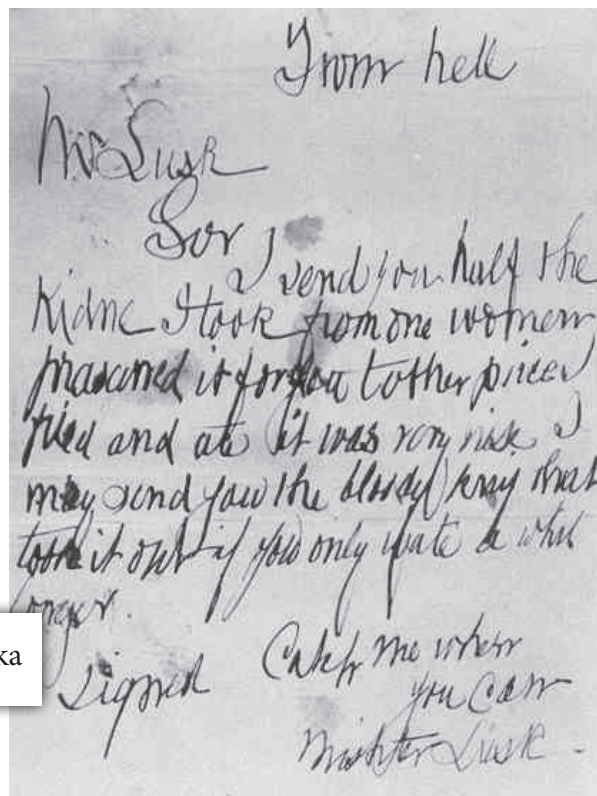 From hell
Mr Lusk
Sor
I send you half the
Kidne I took from one women
prasarved it for you tother piece I
fried and ate it was very nise I
may send you the bloody knif that
took it out if you only wate a whil
longer.
ka
signed
Catch me when
you can
Mishter Lusk.